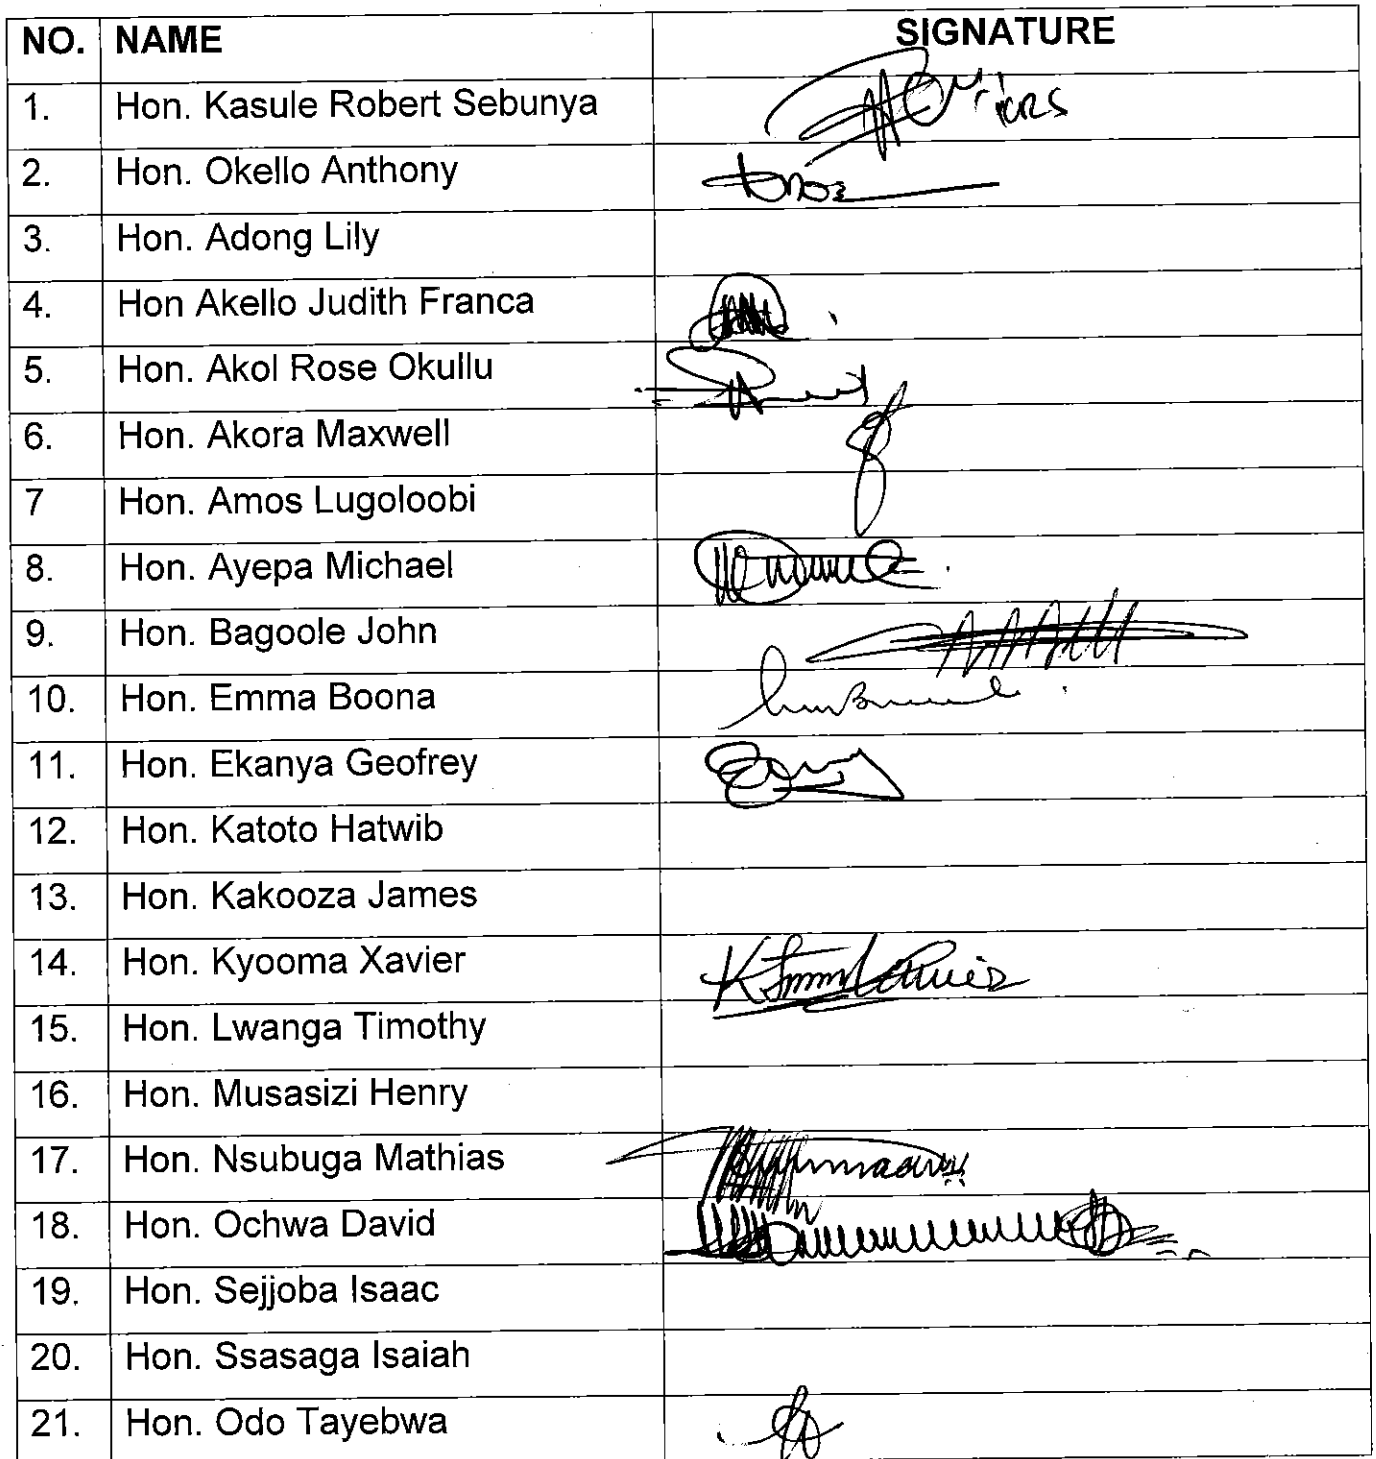 NO. NAME SIGNATURE
1. Hon. Kasule Robert Sebunya
2. Hon. Okello Anthony
3. Hon. Adong Lily
4. Hon Akello Judith Franca
5. Hon. Akol Rose Okullu
6. Hon. Akora Maxwell
7 Hon. Amos Lugoloobi
8. Hon. Ayepa Michael
9. Hon. Bagoole John
10. Hon. Emma Boona
11. Hon. Ekanya Geofrey
12. Hon. Katoto Hatwib
13. Hon. Kakooza James
14. Hon. Kyooma Xavier
15. Hon. Lwanga Timothy
16. Hon. Musasizi Henry
17. Hon. Nsubuga Mathias
18. Hon. Ochwa David
19. Hon. Sejjoba Isaac
20. Hon. Ssasaga Isaiah
21. Hon. Odo Tayebwa